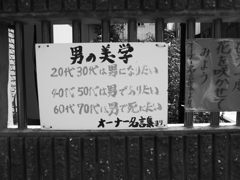 男の美学
20代30代は男になりたい
40代50代は男でありたい
60代70代は男で死にたい
オーナー名言集より
花咲かせて